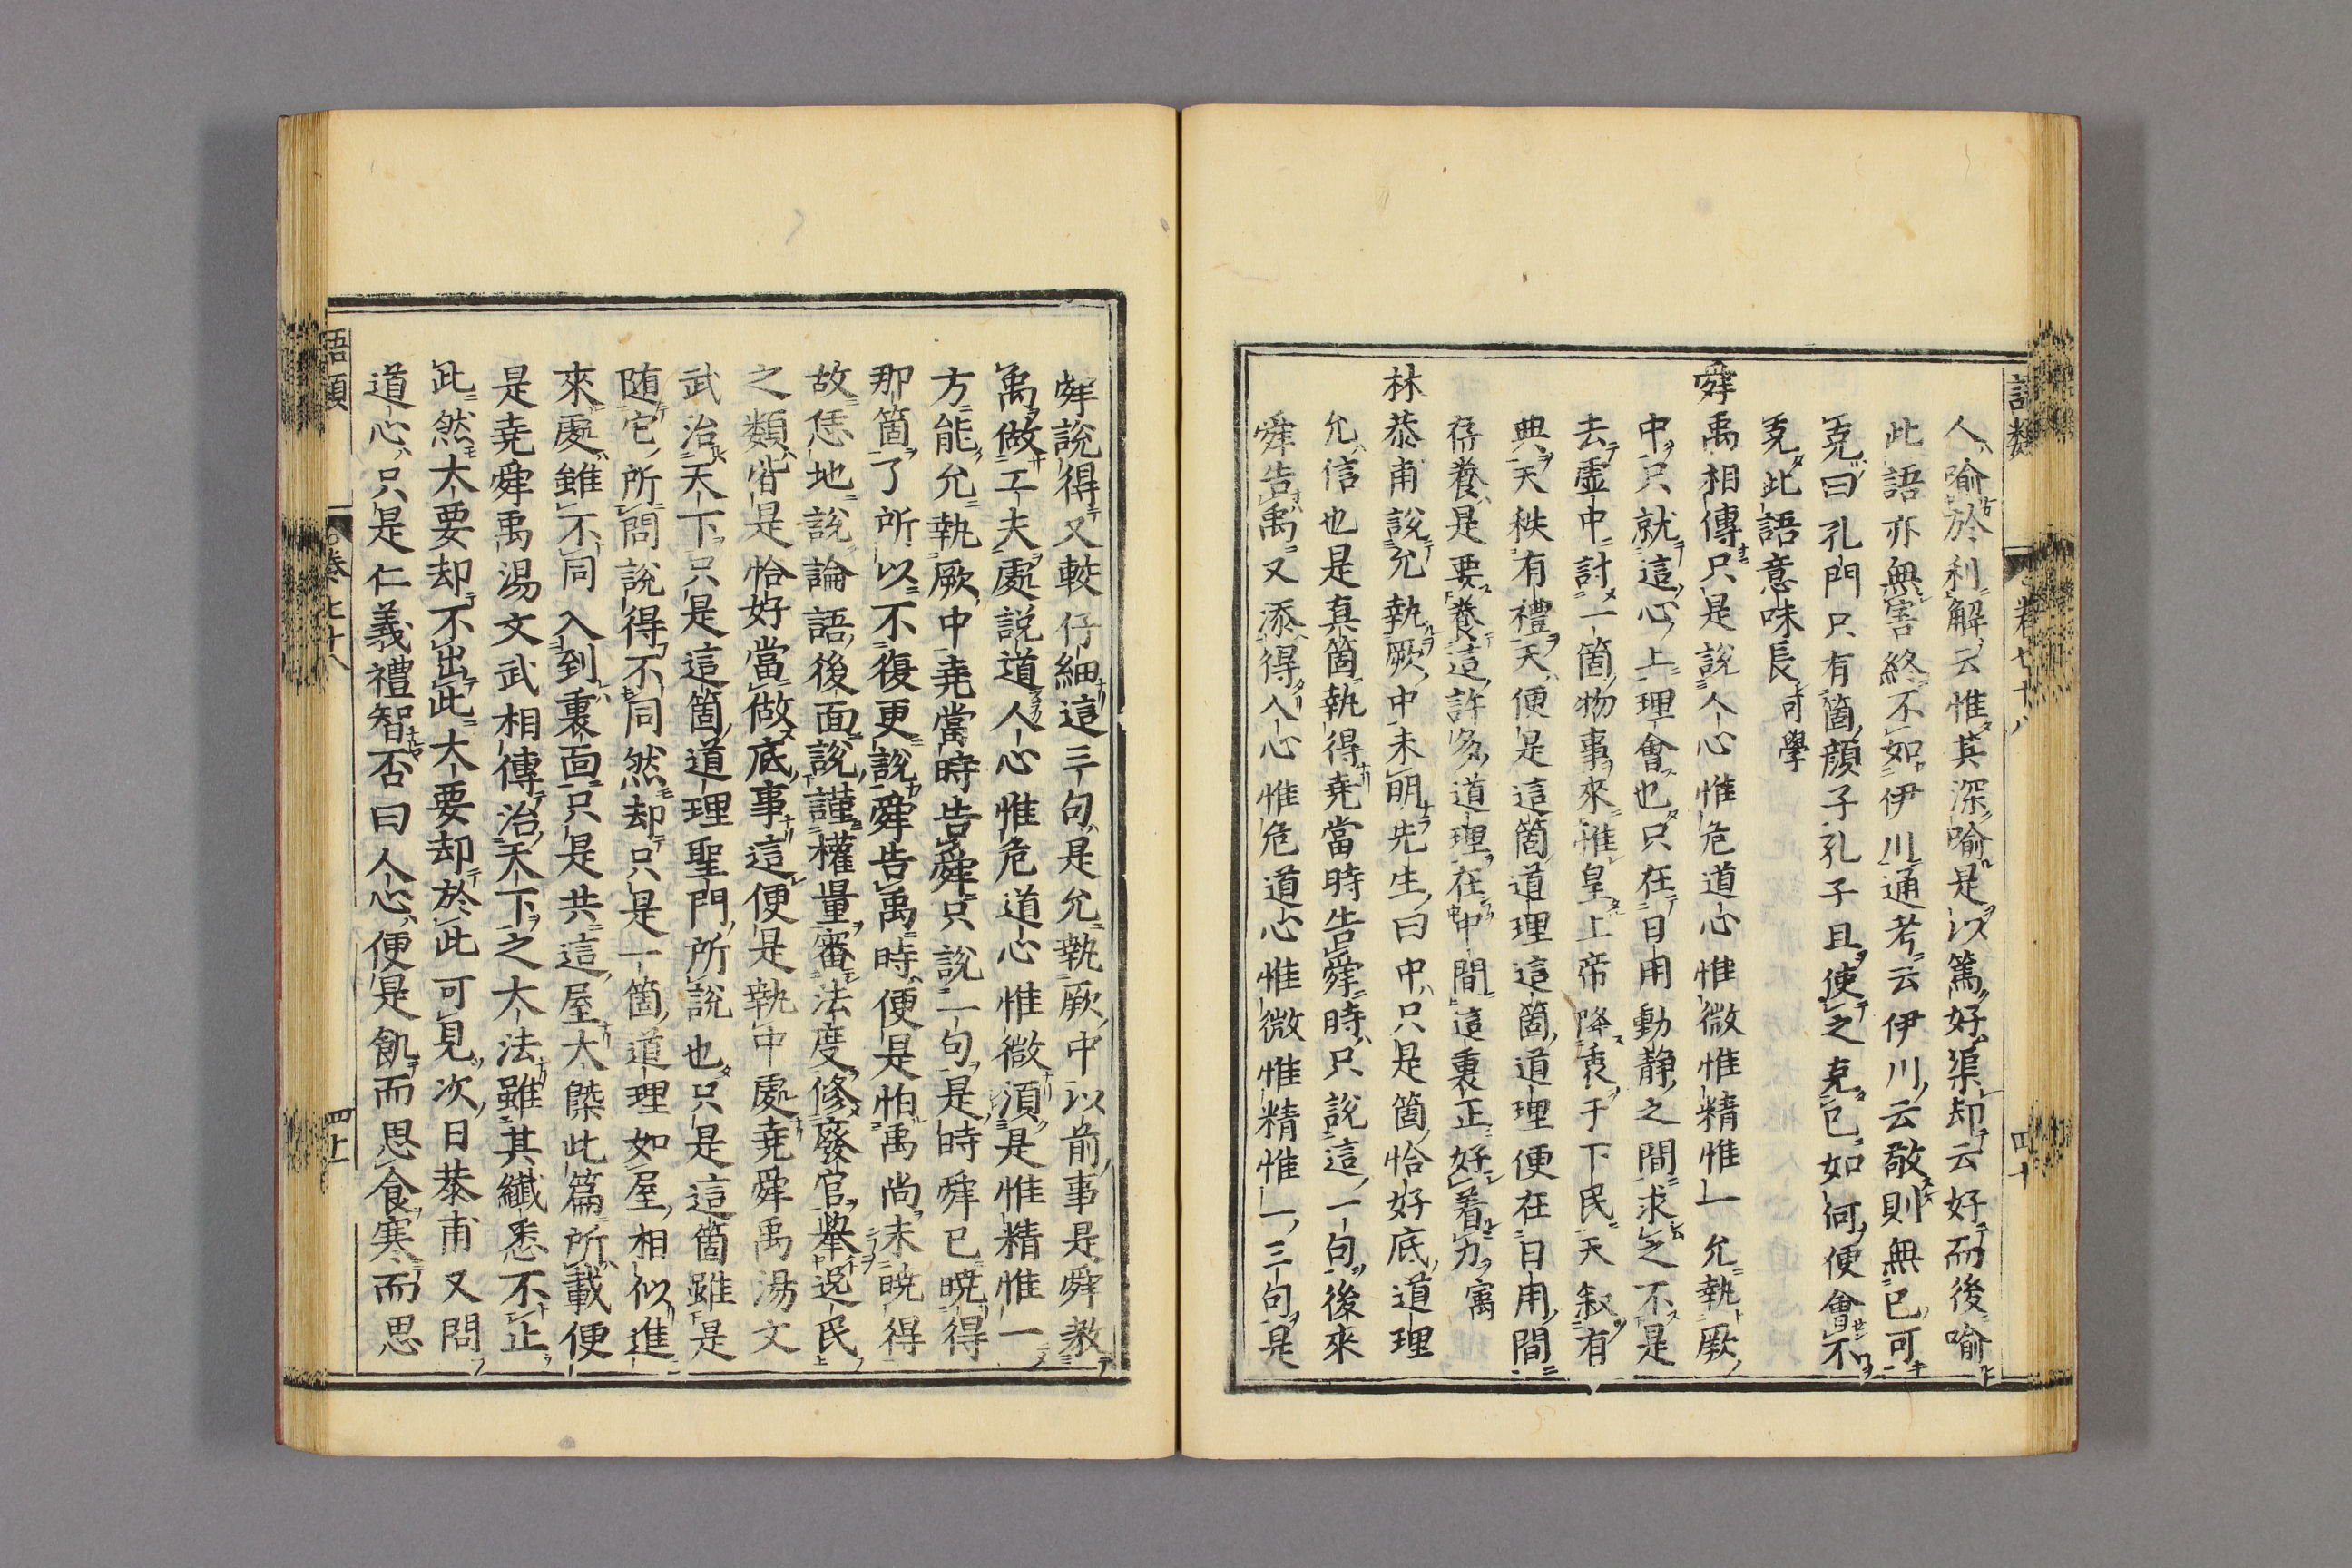 語類 卷七十八 四十
人喻於利解云惟其深喻是以篤好渠却云好而後喻
此語亦無害終不如伊川通考云伊川云敬則無己可
克曰孔門只有箇顏子孔子且使之克己如何便會不
克此語意味長可學
舜禹相傳只是說人心惟危道心惟微惟精惟一允執厥
中只就這心上理會也只在日用動静之間求之不是
去虛中討一箇物事來惟皇上帝降衷于下民天叙有
典天秩有禮天便是這箇道理這箇道理便在日用間
存養是要養這許多道理在中間這裏正好着力㝢
林恭甫說允執厥中未明先生曰中只是箇恰好底道理
允信也是真箇執得堯當時告舜時只說這一句後來
舜告禹又添得人心惟危道心惟微惟精惟一三句是
舜說得又較仔細這三句是允執厥中以前事是舜教
禹做工夫處說道人心惟危道心惟微須是惟精惟一
方能允執厥中堯當時告舜只說一句是時舜已曉得
那箇了所以不復更說舜告禹時便是怕禹尚未曉得
故恁地說論語後面說謹權量審法度修廢官舉逸民
之類皆是恰好當做底事這便是執中處堯舜禹湯文
武治天下只是這箇道理聖門所說也只是這箇雖是
随它所問說得不同然却只是一箇道理如屋相似進
來處雖不同入到裏面只是共這屋大槩此篇所載便
是堯舜禹湯文武相傳治天下之大法雖其纖悉不止
此然大要却不出此大要却於此可見次日恭甫又問
道心只是仁義禮智否曰人心便是飢而思食寒而思
語類 卷七十八 四十